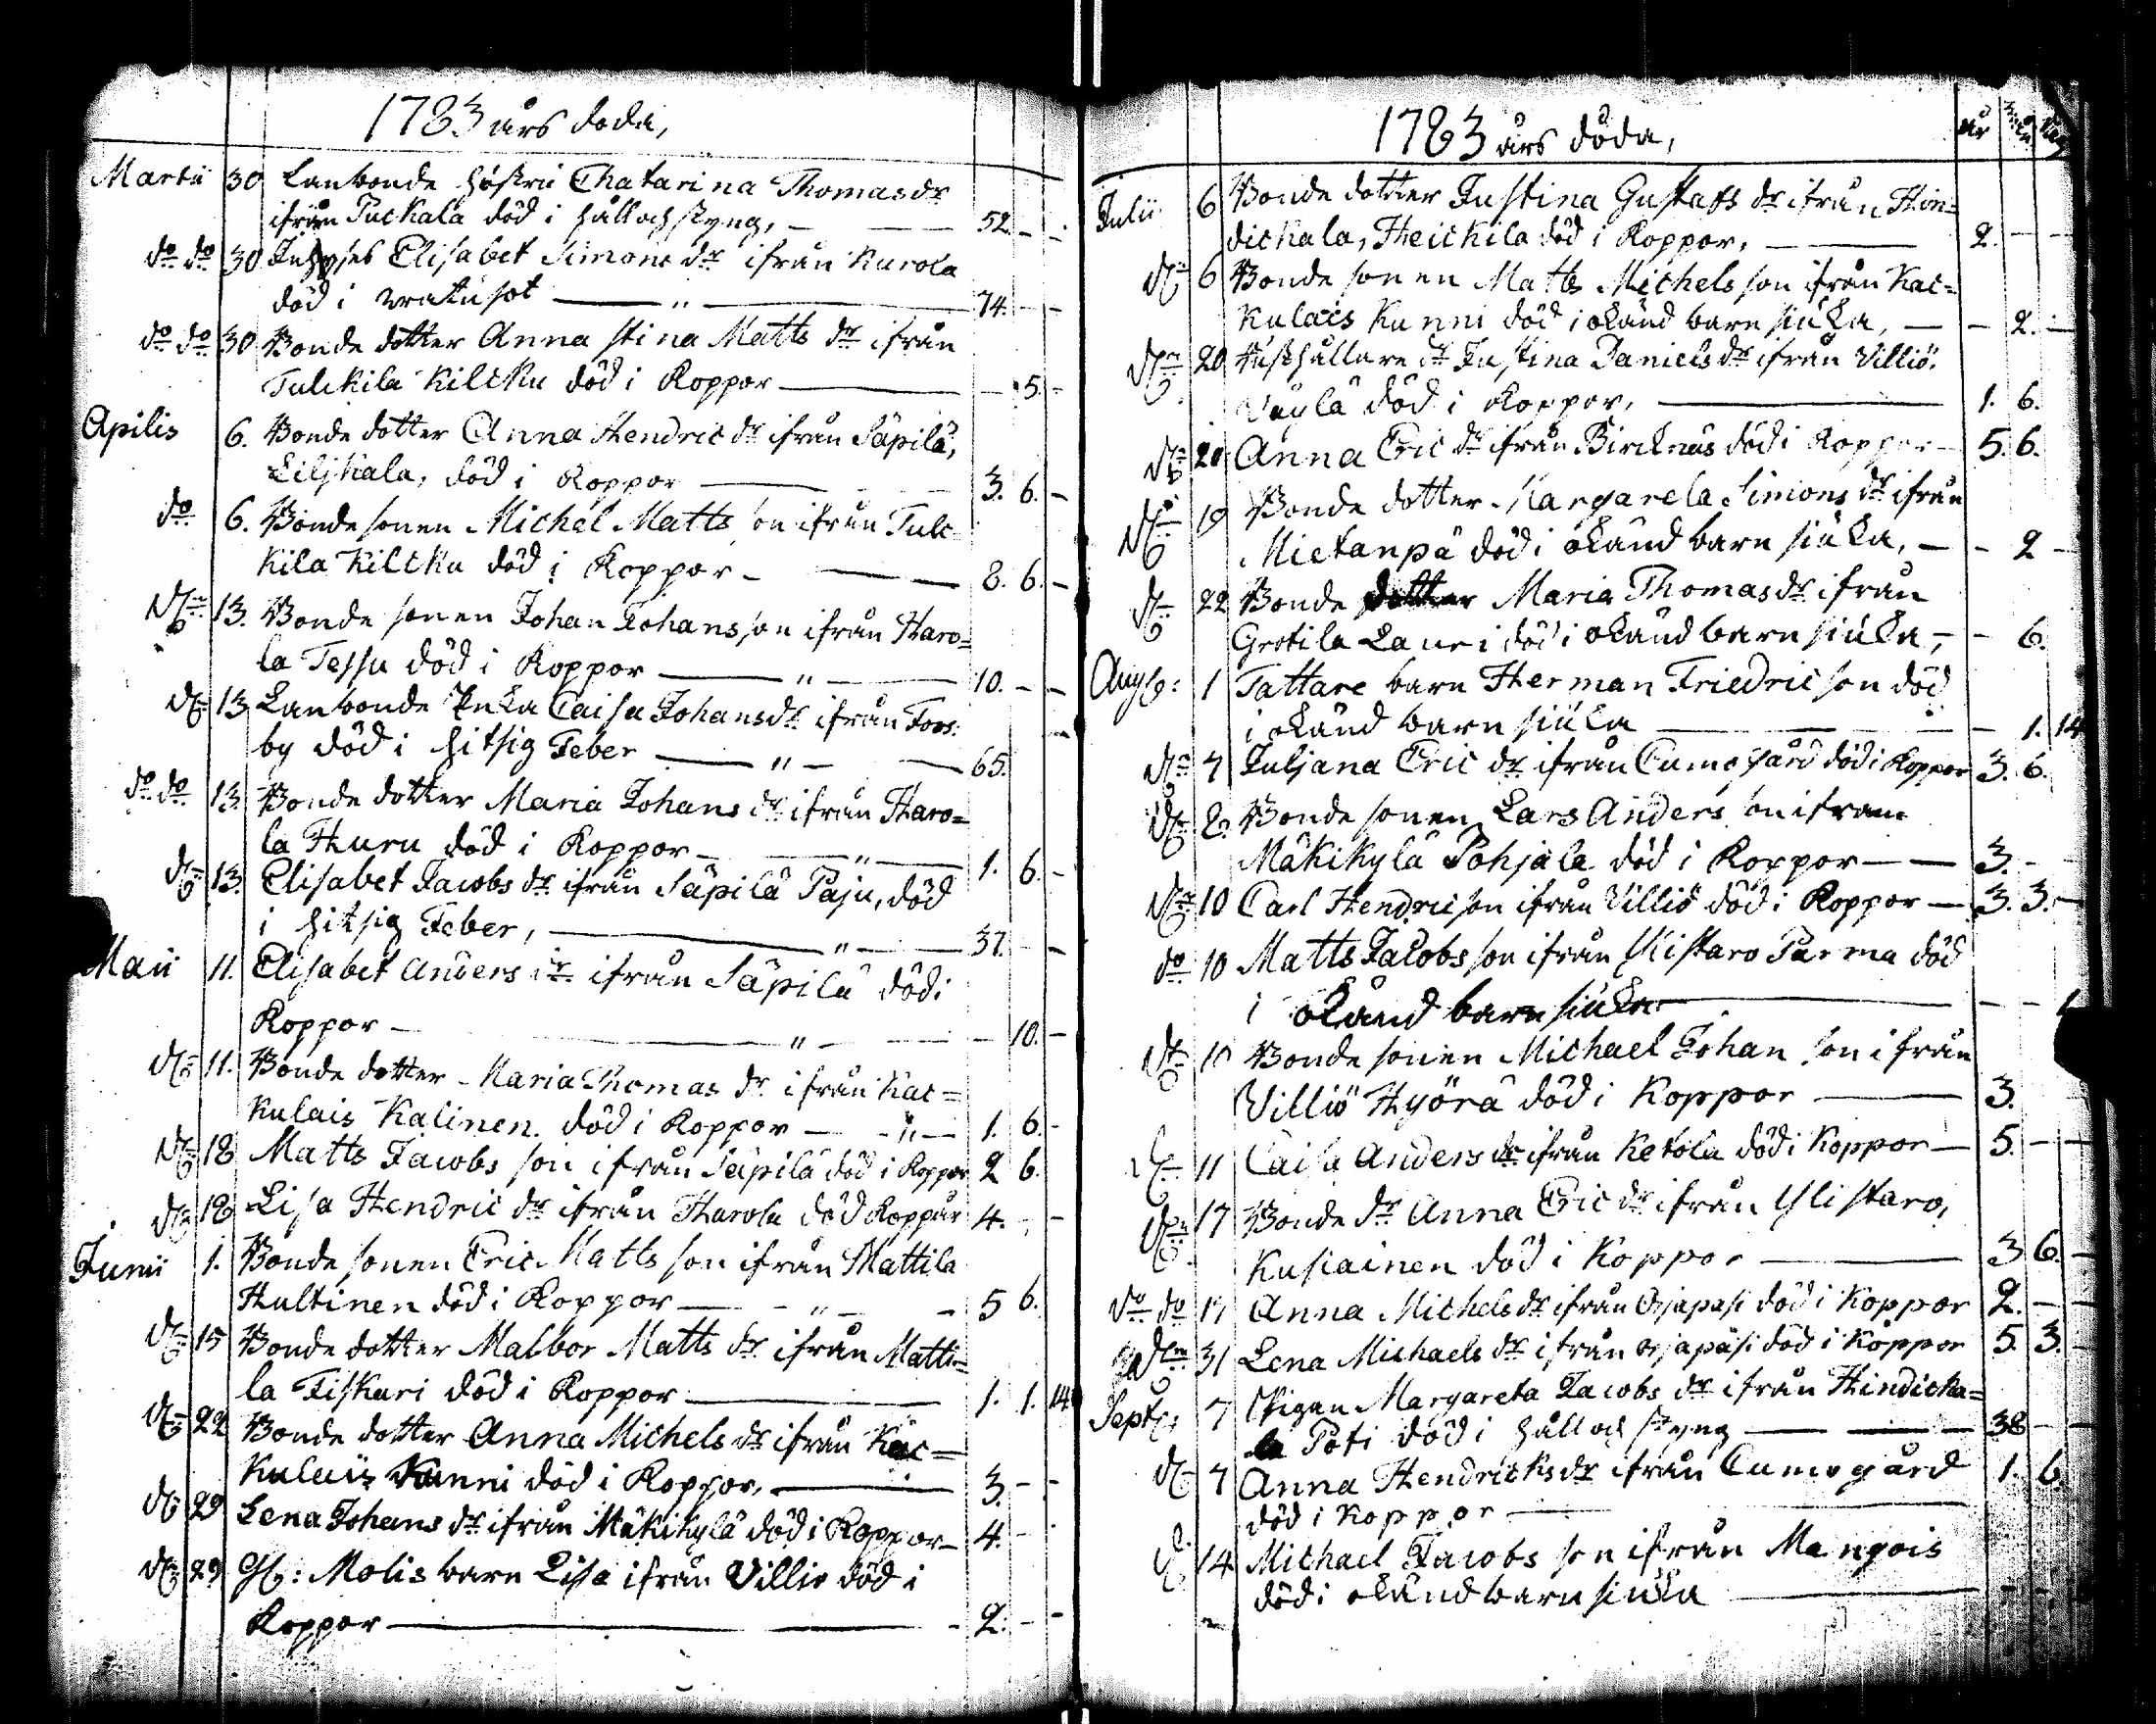 1783 års döda,
Martii 30 Lanbonde hústru Chatarina Thomas dr
ifrån Puckala död i håll och styng, 52. - -
do do 30 Inhyses Elisabet Simons dr ifrån Karola
död i 74. - -
do do 30 Bonde dotter Anna Stina Matts dr ifrån
Tulckila Kilcku död i Koppor - 5. -
Apilis 6. Bonde dotter Anna Hendric dr ifrån Säpilä,
Liljkala, död i Koppor 3. 6. -
do 6. Bonde sonen Michel Matts son ifrån Tulc
kila Kilcku död i Koppor 8. 6. -
do 13. Bonde sonen Johan Johans son ifrån Haro=
la Tessu död i Koppor " 10. - -
do 13 Lanbonde Enka Caisa Johans dr ifrån Fors:
by död i hitsig Feber " 65.
do do 13. Bonde dotter Maria Johans dr ifrån Haro=
la Huru död i Koppor " 1. 6. -
do 13. Elisabet Jacobs dr ifrån Säpilä Paju, död
i hitsig Feber, " 37. - -
Maii 11. Elisabet Anders dr ifrån Säpilä död i
Koppor " - 10. -
do 11. Bonde dotter Maria Thomas dr ifrån Kac=
kulais Kalinen död i Koppor " 1. 6. -
do 18 Matts Jacobs son ifrån Säpilä död i Koppor 2 6.
do 18 Lisa Hendric dr ifrån Harola död Koppor 4. - -
Junii 1. Bonde sonen Eric Matts son ifrån Mattila
Hultinen död i Koppor " 5 6.
do 15 Bonde dotter Malbor Matts dr ifrån Matti=
la Fiskari död i Koppor 1. 1. 14
do 22 Bonde dotter Anna Michels dr ifrån Kac=
kulais Kunni död i Koppor, 3. - -
do 29 Lena Johans dr ifrån Mäkikylä död i Koppor 4. -
do 29 Molis barn Lisa ifrån Villio död i
Koppor 2. - -
1783 års döda, år
Julii 6 Bonde dotter Justina Gustafs dr ifrån Hin=
dickala, Heickila död i Koppor, 2. - -
do 6 Bonde sonen Matts Michels son ifrån Kac=
kulais Kunni död i okänd barn siúka, - 2. -
do 20 Rusthållare dr Justina Daniels dr ifrån Villiö
Väylä död i Koppor, 1. 6.
do 20 Anna Eric dr ifrån Bircknäs död i Koppor 5. 6.
do 19 Bonde dotter Margareta Simons dr ifrån
Mietanpä död i okänd barn siúka, - 2 -
do 22 Bonde dotter Maria Thomas dr ifrån
Grotila Lauri död i okänd barn siúka, - 6.
Aug: 1 Tattare barn Herman Friedric son död
i okänd barn siúka - 1. 14
do 7 Juljana Eric dr ifrån Cumogård död i Koppor 3. 6.
do 8. Bonde sonen Lars Anders son ifrån
Mäkikylä Pohjala död i Koppor 3. - -
do 10 Carl Hendric son ifrån Villiö död i Koppor 3. 3. -
do 10 Matts Jacobs son ifrån Ylistaro Parma död
i okänd barn siúka - -
do 10 Bonde sonen Michael Johan son ifrån
Villiö Hyörä död i Koppor 3.
do 11 Caisa Anders dr ifrån Ketola död i Koppor 5. - -
do 17 Bonde dr Anna Eric dr ifrån Ylistaro,
Kusiainen död i Koppor 3 6. -
do do 17 Anna Michels dr ifrån Orjapasi död i Koppor 2. - -
do 31 Lena Michaels dr ifrån orjapäsi död i Koppor 5. 3. -
Sept: 7 Pigan Margareta Jacobs dr ifrån Hindicka=
la Poti död i håll och styng 38 - -
do 7 Anna Hendricks dr ifrån Cumogård 1. 6.
död i Koppor
do 14 Michael Jacobs son ifrån Mangois
död i okänd barn siúka - -